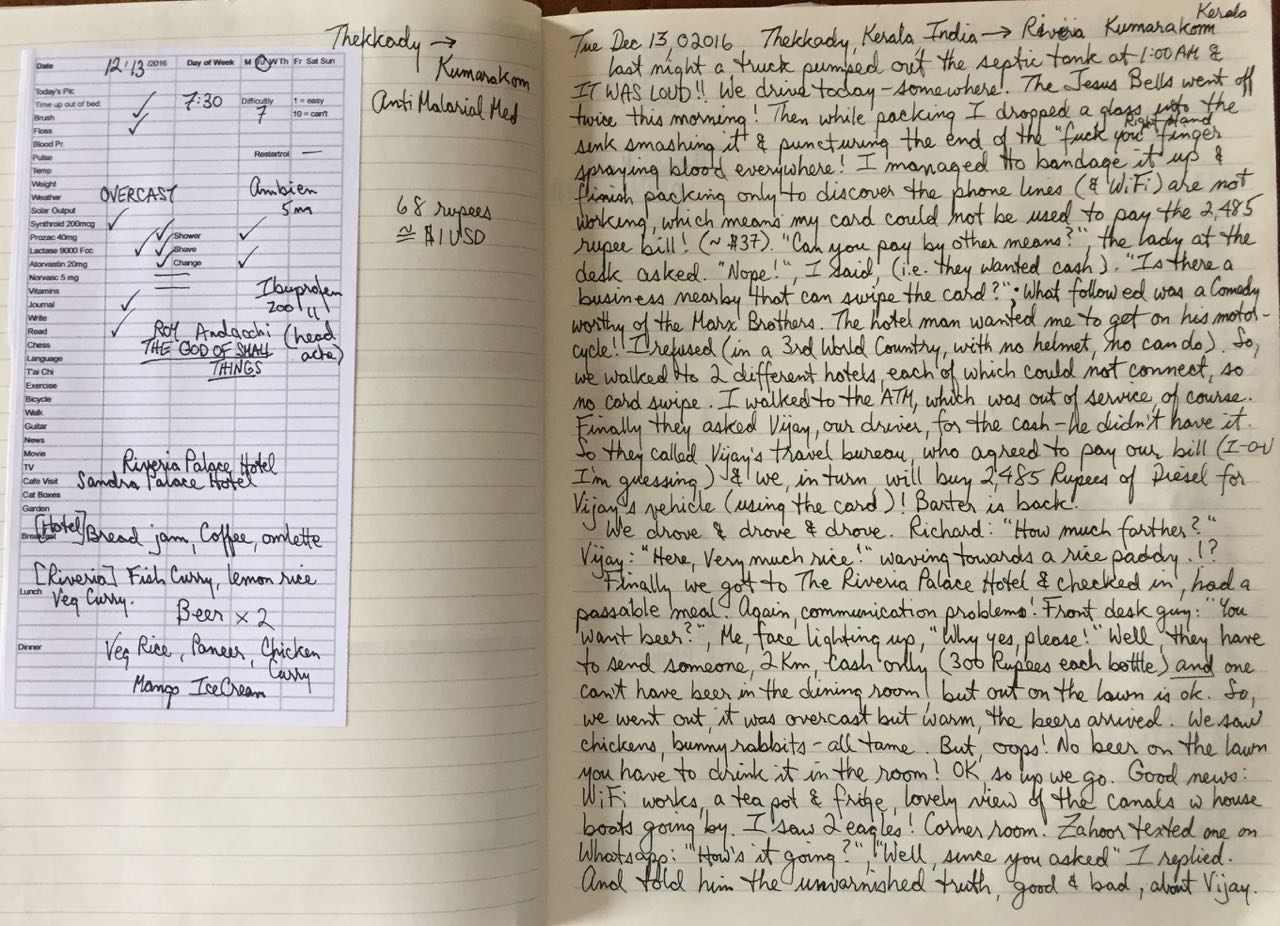 Thekkady →
Kumarakom
Anti Malarial Med
68 rupees
≅ $1 USD
Date 12/13/2016 Day of Week M Tu W Th Fr Sat Sun
Today's Pic
Time up out of bed ✓ 7:30 Difficulty 1 = easy
Brush ✓ 7 10 = can't
Floss
Blood Pr.
Pulse Restertrol —
Temp
Weight Ambien
Weather OVERCAST 5 mg
Solar Output
Synthroid 200mcg ✓
Prozac 40mg ✓ Shower ✓
Lactase 9000 Fcc ✓ Shave
Atorvastin 20mg ✓ Change ✓
Norvasc 5 mg
Vitamins Ibuprofen
Journal ✓ 200 "
Write
Read ✓ ROY (head
Chess THE GOD OF SMALL ache)
Language THINGS
T'ai Chi
Exercise
Bicycle
Walk
Guitar
News
Movie
TV Riveria Palace Hotel
Cafe Visit Sandra Palace Hotel
Cat Boxes
Garden
Breakfast [Hotel] Bread jam, Coffee, omlette
[Riveria] Fish Curry, lemon rice
Lunch Veg Curry.
Beer × 2
Dinner Veg Rice, Paneer, Chicken
Curry
Mango IceCream
Kerala
Tue Dec 13, 02016 Thekkady, Kerala India → Riveria Kumarakom
last night a truck pumped out the septic tank at 1:00 AM &
IT WAS LOUD!! We drive today - somewhere. The Jesus Bells went off
twice this morning! Then while packing I dropped a glass into the
Right hand
sink smashing it & puncturing the end of the "fuck you" finger
spraying blood everywhere! I managed to bandage it up &
finish packing only to discover the phone lines (& WiFi) are not
working, which means my card could not be used to pay the 2,485
rupee bill! (~ $37). "Can you pay by other means?", the lady at the
desk asked. "Nope!", I said, (i.e. they wanted cash). "Is there a
business nearby that can swipe the card?". What followed was a Comedy
worthy of the Marx Brothers. The hotel man wanted me to get on his motor-
cycle! I refused (in a 3rd World Country, with no helmet, no can do). So,
we walked to 2 different hotels, each of which could not connect, so
no card swipe. I walked to the ATM, which was out of service of course.
Finally they asked Vijay, our driver, for the cash - he didn't have it.
So they called Vijay's travel bureau, who agreed to pay our bill (I-OU
I'm guessing) & we, in turn will buy 2,485 Rupees of Diesel for
Vijay's vehicle (using the card)! Barter is back!
We drove & drove & drove. Richard: "How much farther?"
Vijay: "Here, Very much rice!" waving towards a rice paddy. !?
Finally we got to The Riveria Palace Hotel & checked in, had a
passable meal. Again, communication problems! Front desk guy: "You
want beer?", Me, face lighting up, "Why yes, please!" Well they have
to send someone, 2 Km, Cash only (300 Rupees each bottle) and one
can't have beer in the dining room! but out on the lawn is ok. So,
we went out, it was overcast but warm, the beers arrived. We saw
chickens, bunny rabbits - all tame. But, oops! No beer on the lawn
you have to drink it in the room! OK, so up we go. Good news:
WiFi works, a tea pot & fridge, lovely view of the canals w house
boats going by. I saw 2 eagles! Corner room. Zahoor texted me on
Whatsapp: "How's it going?", "Well, since you asked" I replied.
And told him the unvarnished truth, good & bad, about Vijay.